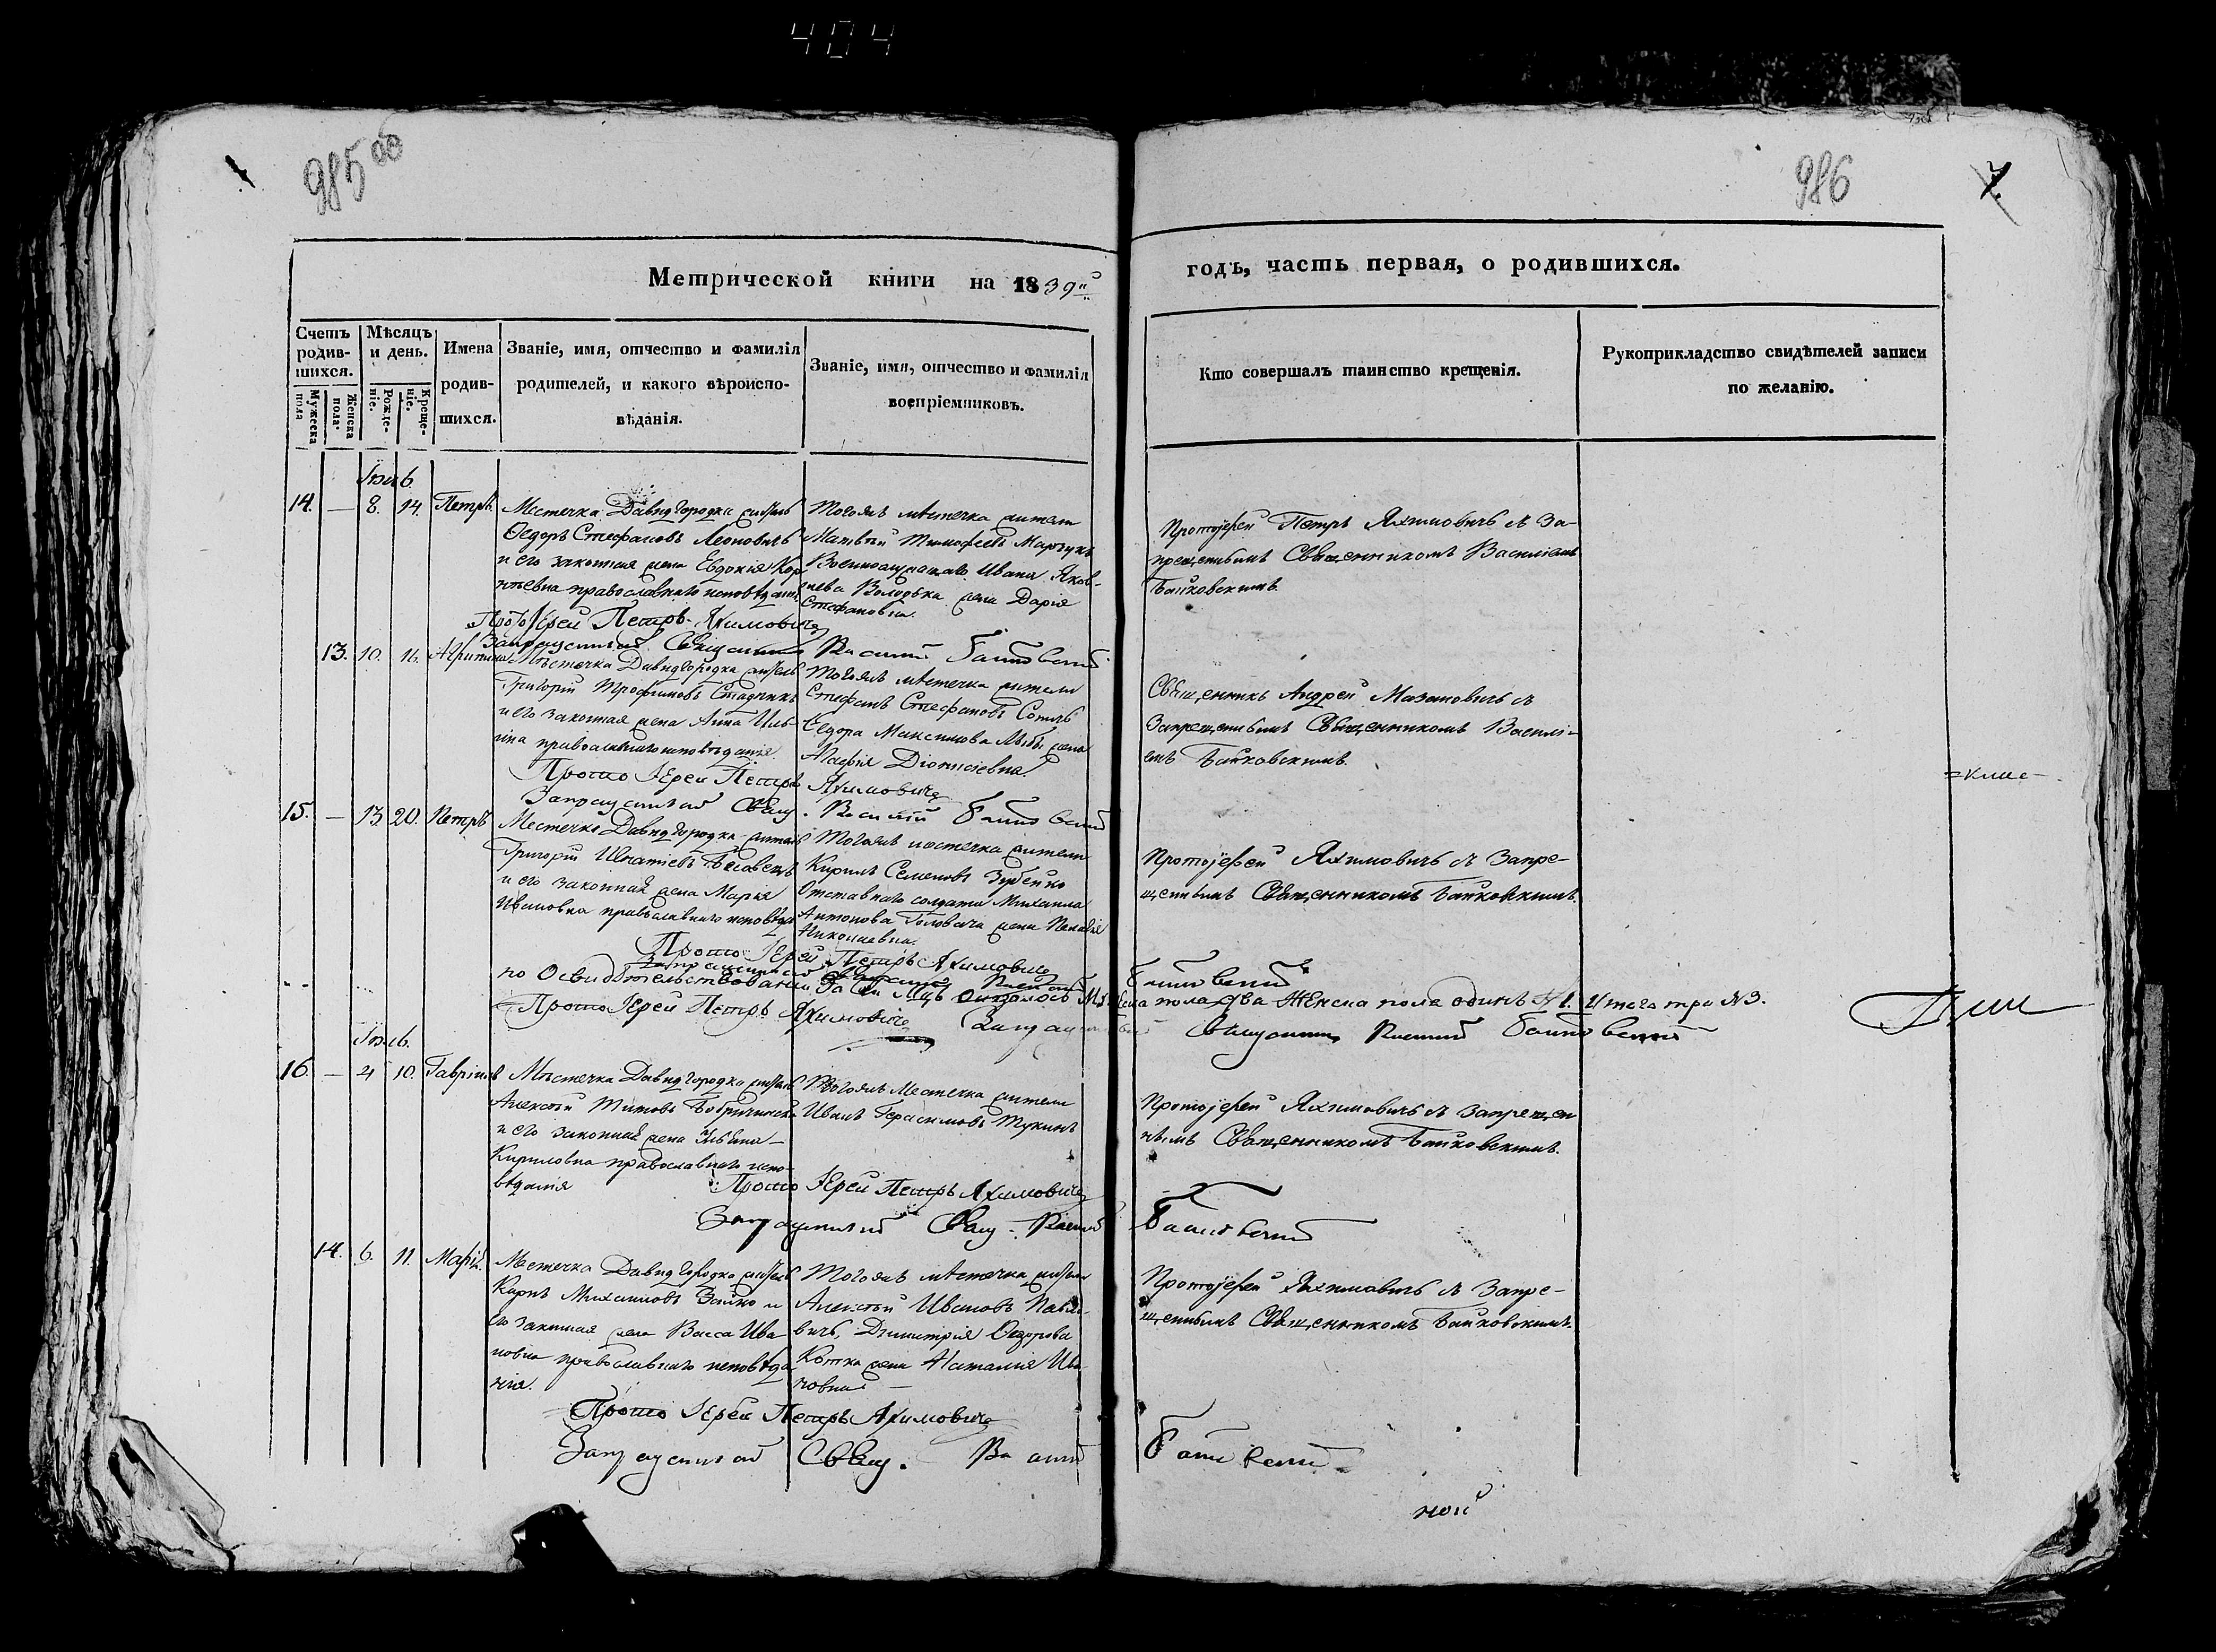 404
985 об
986
7.
Метрической книги на 1839й
годъ, часть первая, о родившихся.
Счетъ родившихся.
Мужеска пола
Женска пола
Мѣсяцъ и день.
Рожденіе.
Крещеніе.
Имена родившихся.
Званіе, имя, отчество и фамилія родителей, и какого вѣроисповѣданія.
Званіе, имя, отчество и фамилія воспріемниковъ.
Кто совершалъ таинство крещенія.
Рукоприкладство свидѣтелей записи по желанію.
14. — 8. 14. Петръ
Местечка Давидгородка житель
Ѳедоръ Стефановъ Леоновичъ
и его законная жена Евдокія Кор-
нѣевна православнаго исповѣданія
Тогожъ мѣстечка жители
Матвѣй Тимофеевъ Марзукъ
Военнослужащаго Ивана Яков-
лева Володька жена Дарія
Стефановна.
Протоіерей Петръ Яхимовичъ съ За-
прещеннымъ Священникомъ Василіемъ
Байковскимъ.
Протоіерей Петръ Яхимовичъ
Запрещенный Священникъ Василий Байковский
13. 10. 16.
Мѣстечка Давидгородка житель
Григорій Трофимовъ Стадникъ
и его законная жена Анна Иль-
ина православнаго исповѣданія
Тогожъ мѣстечка жители
Стефанъ Стефановъ
Ѳедора Максимова жена
Марія Діонисіевна.
Священникъ Андрей Мазановичъ съ
Запрещеннымъ Священникомъ Василі-
емъ Байковскимъ.
Прото Іерей Петръ Яхимовичъ
Запрещенный Свящ. Василий Байковский
15. — 13. 20. Петръ
Местечка Давидгородка житель
Григорій Игнатіевъ
и его законная жена Марія
Ивановна православнаго исповѣда
Тогожъ мѣстечка жители
Кирилъ Семеновъ Зубейко
Отставнаго солдата Михаила
Антонова Головача жена Пелагія
Николаевна.
Протоіерей Яхимовичъ съ Запре-
щеннымъ Священникомъ Байковскимъ.
Прото Іерей Петръ Яхимовичъ
Запрещенный Священникъ Василий Байковский
по Освидѣтельствованіи За Сей Мцъ оказалось Мужеска пола два Женска пола одинъ №1. Итого три №3.
Прото Іерей Петръ Яхимовичъ Запрещенный Священникъ Василий Байковский
16. — 4 10. Гавріилъ
Мѣстечка Давидгородка житель
Алексѣй Титовъ
и его законная жена
Кириловна православнаго испо-
вѣданія
Тогожъ Местечка жители
Иванъ Герасимовъ Тукинъ
Протоіерей Яхимовичъ съ запрещен
нымъ Священникомъ Байковскимъ.
Прото Іерей Петръ Яхимовичъ
Запрещенный Свящ. Василий Байковский
14. 6. 11. Марія.
Местечка Давидгородка житель
Карпъ Михаиловъ Зайко и
его законная жена Васса Ива
новна православнаго исповѣда
нія.
Тогожъ мѣстечка жители
Алексѣй Ивановъ Павло-
вичъ, Димитрія Ѳедорова
Котка жена Наталія Ива
новна
Протоіерей Яхимовичъ съ Запре-
щеннымъ Священникомъ Байковскимъ.
Прото Іерей Петръ Яхимовичъ
Запрещенный Свящ. Василий Байковский
ной